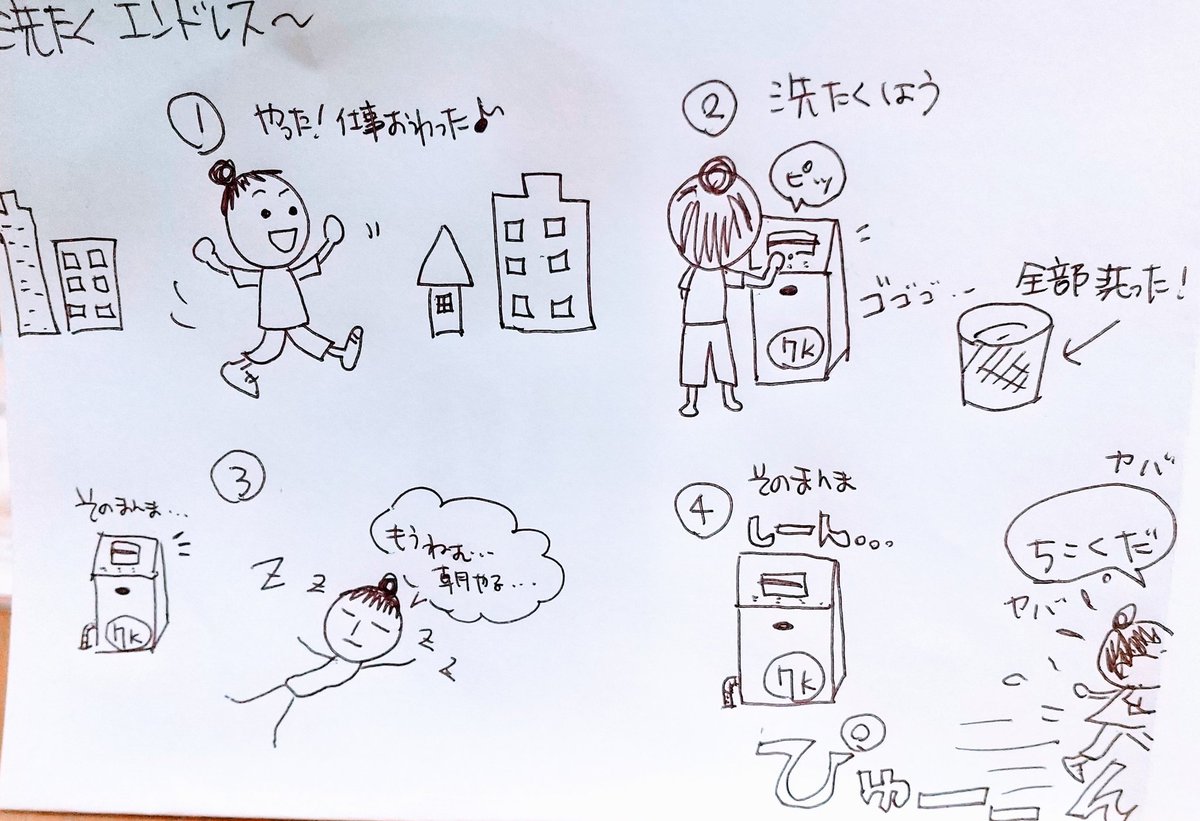 洗たく エンドレス〜
①
やった!仕事おわった♪
②
洗たくほう
ピッ
ゴゴゴ・・
全部洗った!
7K
③
そのまんま...
もうねむ...
朝やる...
z z
z z
7K
④
そのまんま
しーん。。。
ヤバ
ちこくだ
ヤバ
7K
ぴゅーーん